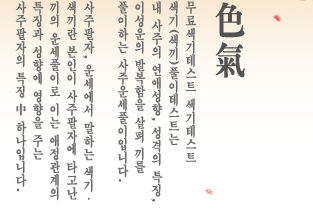 色氣
무료색기테스트 색기테스트
색기(색끼)풀이테스트는
내 사주의 연애성향, 성욕의 특징,
이성운의 발복함을 살펴 끼를
풀이하는 사주운세풀이입니다.
사주팔자, 운세에서 말하는 색기.
색끼란 본인이 사주팔자에 타고난
끼의 운세풀이로 이는 애정관계의
특징과 성향에 영향을 주는
사주팔자의 특징 中 하나입니다.